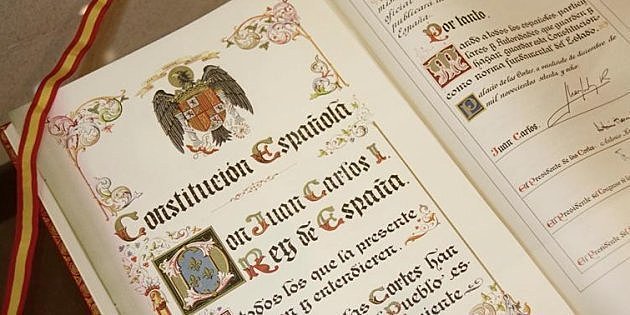 Constitución Española
Don Juan Carlos I,
Rey de España,
todos los que la presente
y entendieren,
Cortes han
Pueblo es
oficial
publicará
España.
Por tanto,
Mando a todos los españoles, particu
lares y Autoridades que guarden y
hagan guardar esta Constitución
como norma fundamental del Estado.
Palacio de las Cortes, a veintisiete de diciembre de
mil novecientos setenta y ocho
Juan Carlos.
El Presidente de las Cortes
El Presidente del Congreso
El Presidente del